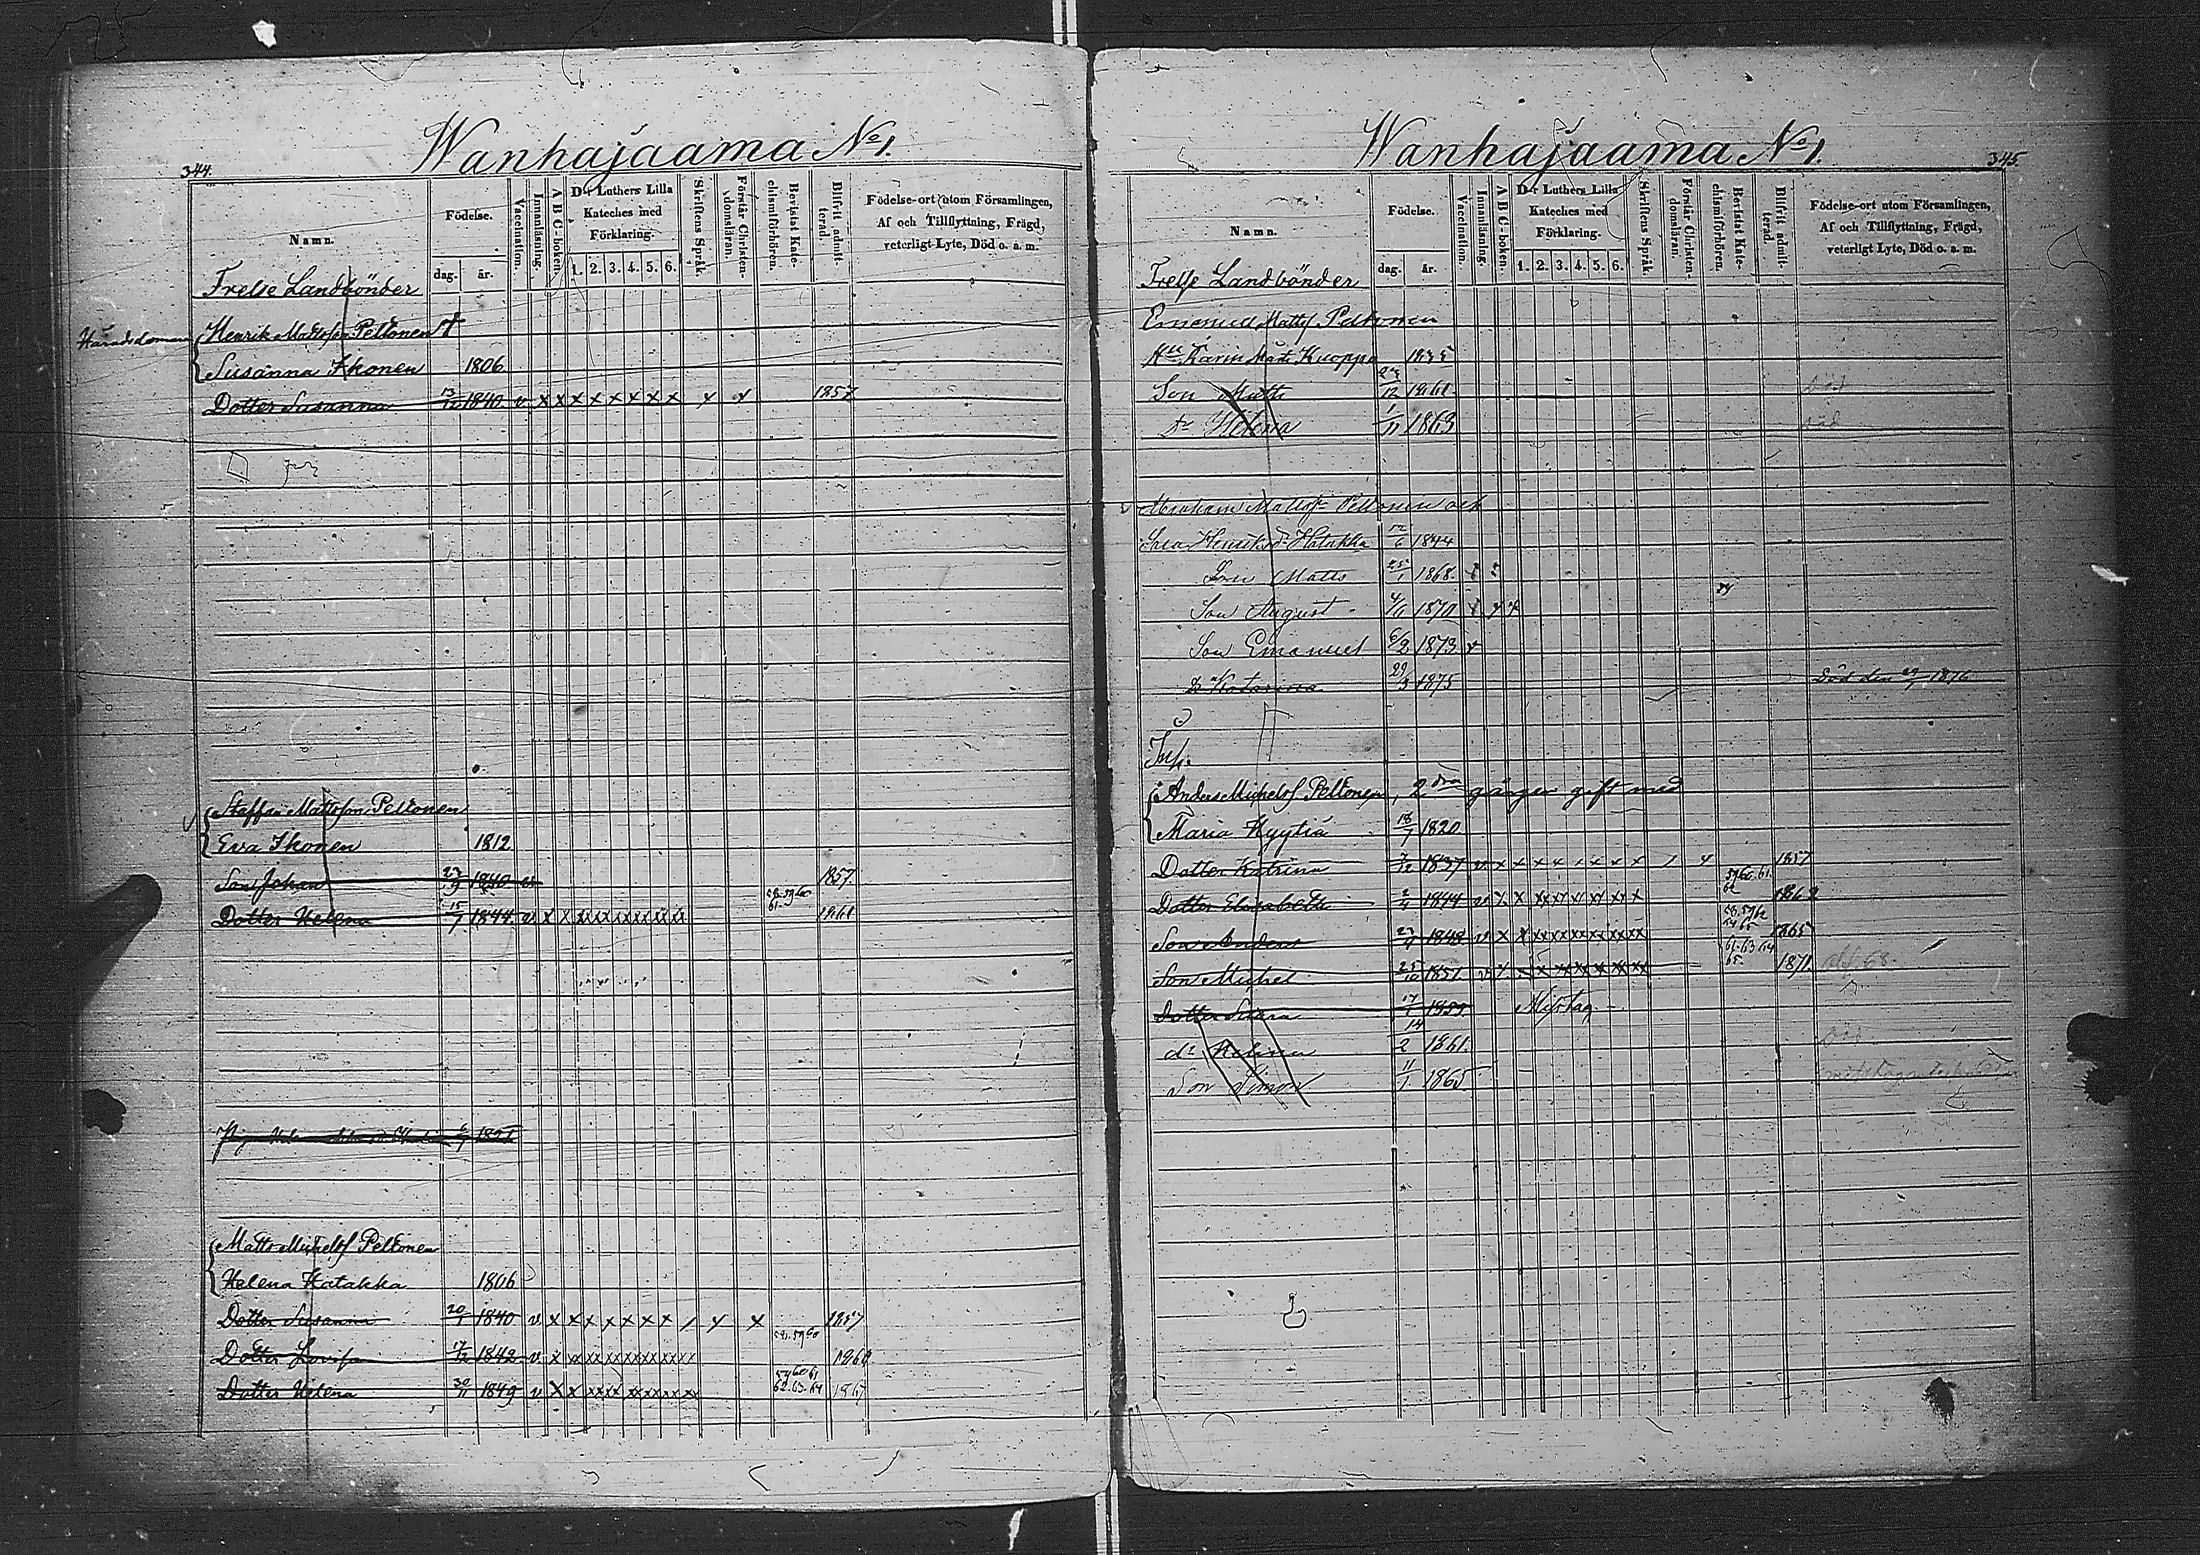 344.
Wanhajaama No 1.
Namn.
Födelse.
dag. år.
Vaccination.
Innanläsning.
A B C-boken.
D:r Luthers Lilla
Kateches med
Förklaring.
1. 2. 3. 4. 5. 6.
Skriftens Språk.
Förstår Christen-
domsläran.
Bevistat Kate-
chismiförhören.
Blifvit admit-
terad.
Födelse-ort utom Församlingen,
Af och Tillflyttning, Frägd,
veterligt Lyte, Död o. a. m.
Frelse Landbönder
Henrik Mattsson Peltonen †
Susanna Ikonen 1806
Dotter Susanna 1840 v x x x x x x x x 1857
Staffan Mattsson Peltonen
Eva Ikonen 1812
Son Johan 27/9 1840 v 1857
Dotter Helena 15/7 1844 v x x xx xx xx xx xx xx 1861
Matts Michelss Peltonen
Helena Hatakka 1806
Dotter Susanna 20/1 1840 v x x x x x x x x 1857
58. 59 60
Dotter Lovisa 1842 v x xx xx xx xx xx xx 1860
59 60 61
Dotter Helena 30/11 1849 v x x xx xx xx xx xx xx 62. 63. 64 1867
345.
Wanhajaama No 1.
Namn.
Födelse.
dag. år.
Vaccination.
Innanläsning.
A B C-boken.
D:r Luthers Lilla
Kateches med
Förklaring.
1. 2. 3. 4. 5. 6.
Skriftens Språk.
Förstår Christen-
domsläran.
Bevistat Kate-
chismiförhören.
Blifvit admit-
terad.
Födelse-ort utom Församlingen,
Af och Tillflyttning, Frägd,
veterligt Lyte, Död o. a. m.
Frelse Landbönder
Emanuel Mattss Peltonen
Hu Karin Kuoppa 1835
Son Matts 1861 död
dr Helena 1/11 1863 död
Abraham Mattss Peltonen och
Henriksdr Hatakka 1844
Son Matts 25/1 1868
Son August 1870
Son Emanuel 6/2 1873
Dr Katarina 29/3 1875 Död den 1876
Inh.
Anders Michelss Peltonen, 2dra gången gift med
Maria Kyytiä 18/7 1820
Dotter Katrina 1837 1857
Dotter Elisabeth 1844 1862
Son Anders 27/9 1848 1865
Son Michel 25/10 1851 1871
Dotter Maria 17/1 Misstag
dr Helena 14/2 1861 död
Son Simon 11/1 1865